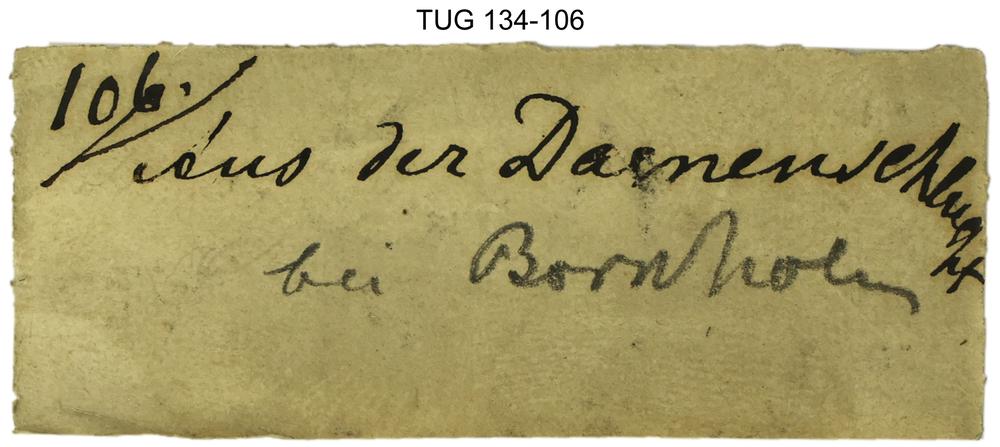 TUG 134-106
106./ Aus der Daenenschlucht
bei Bornholm